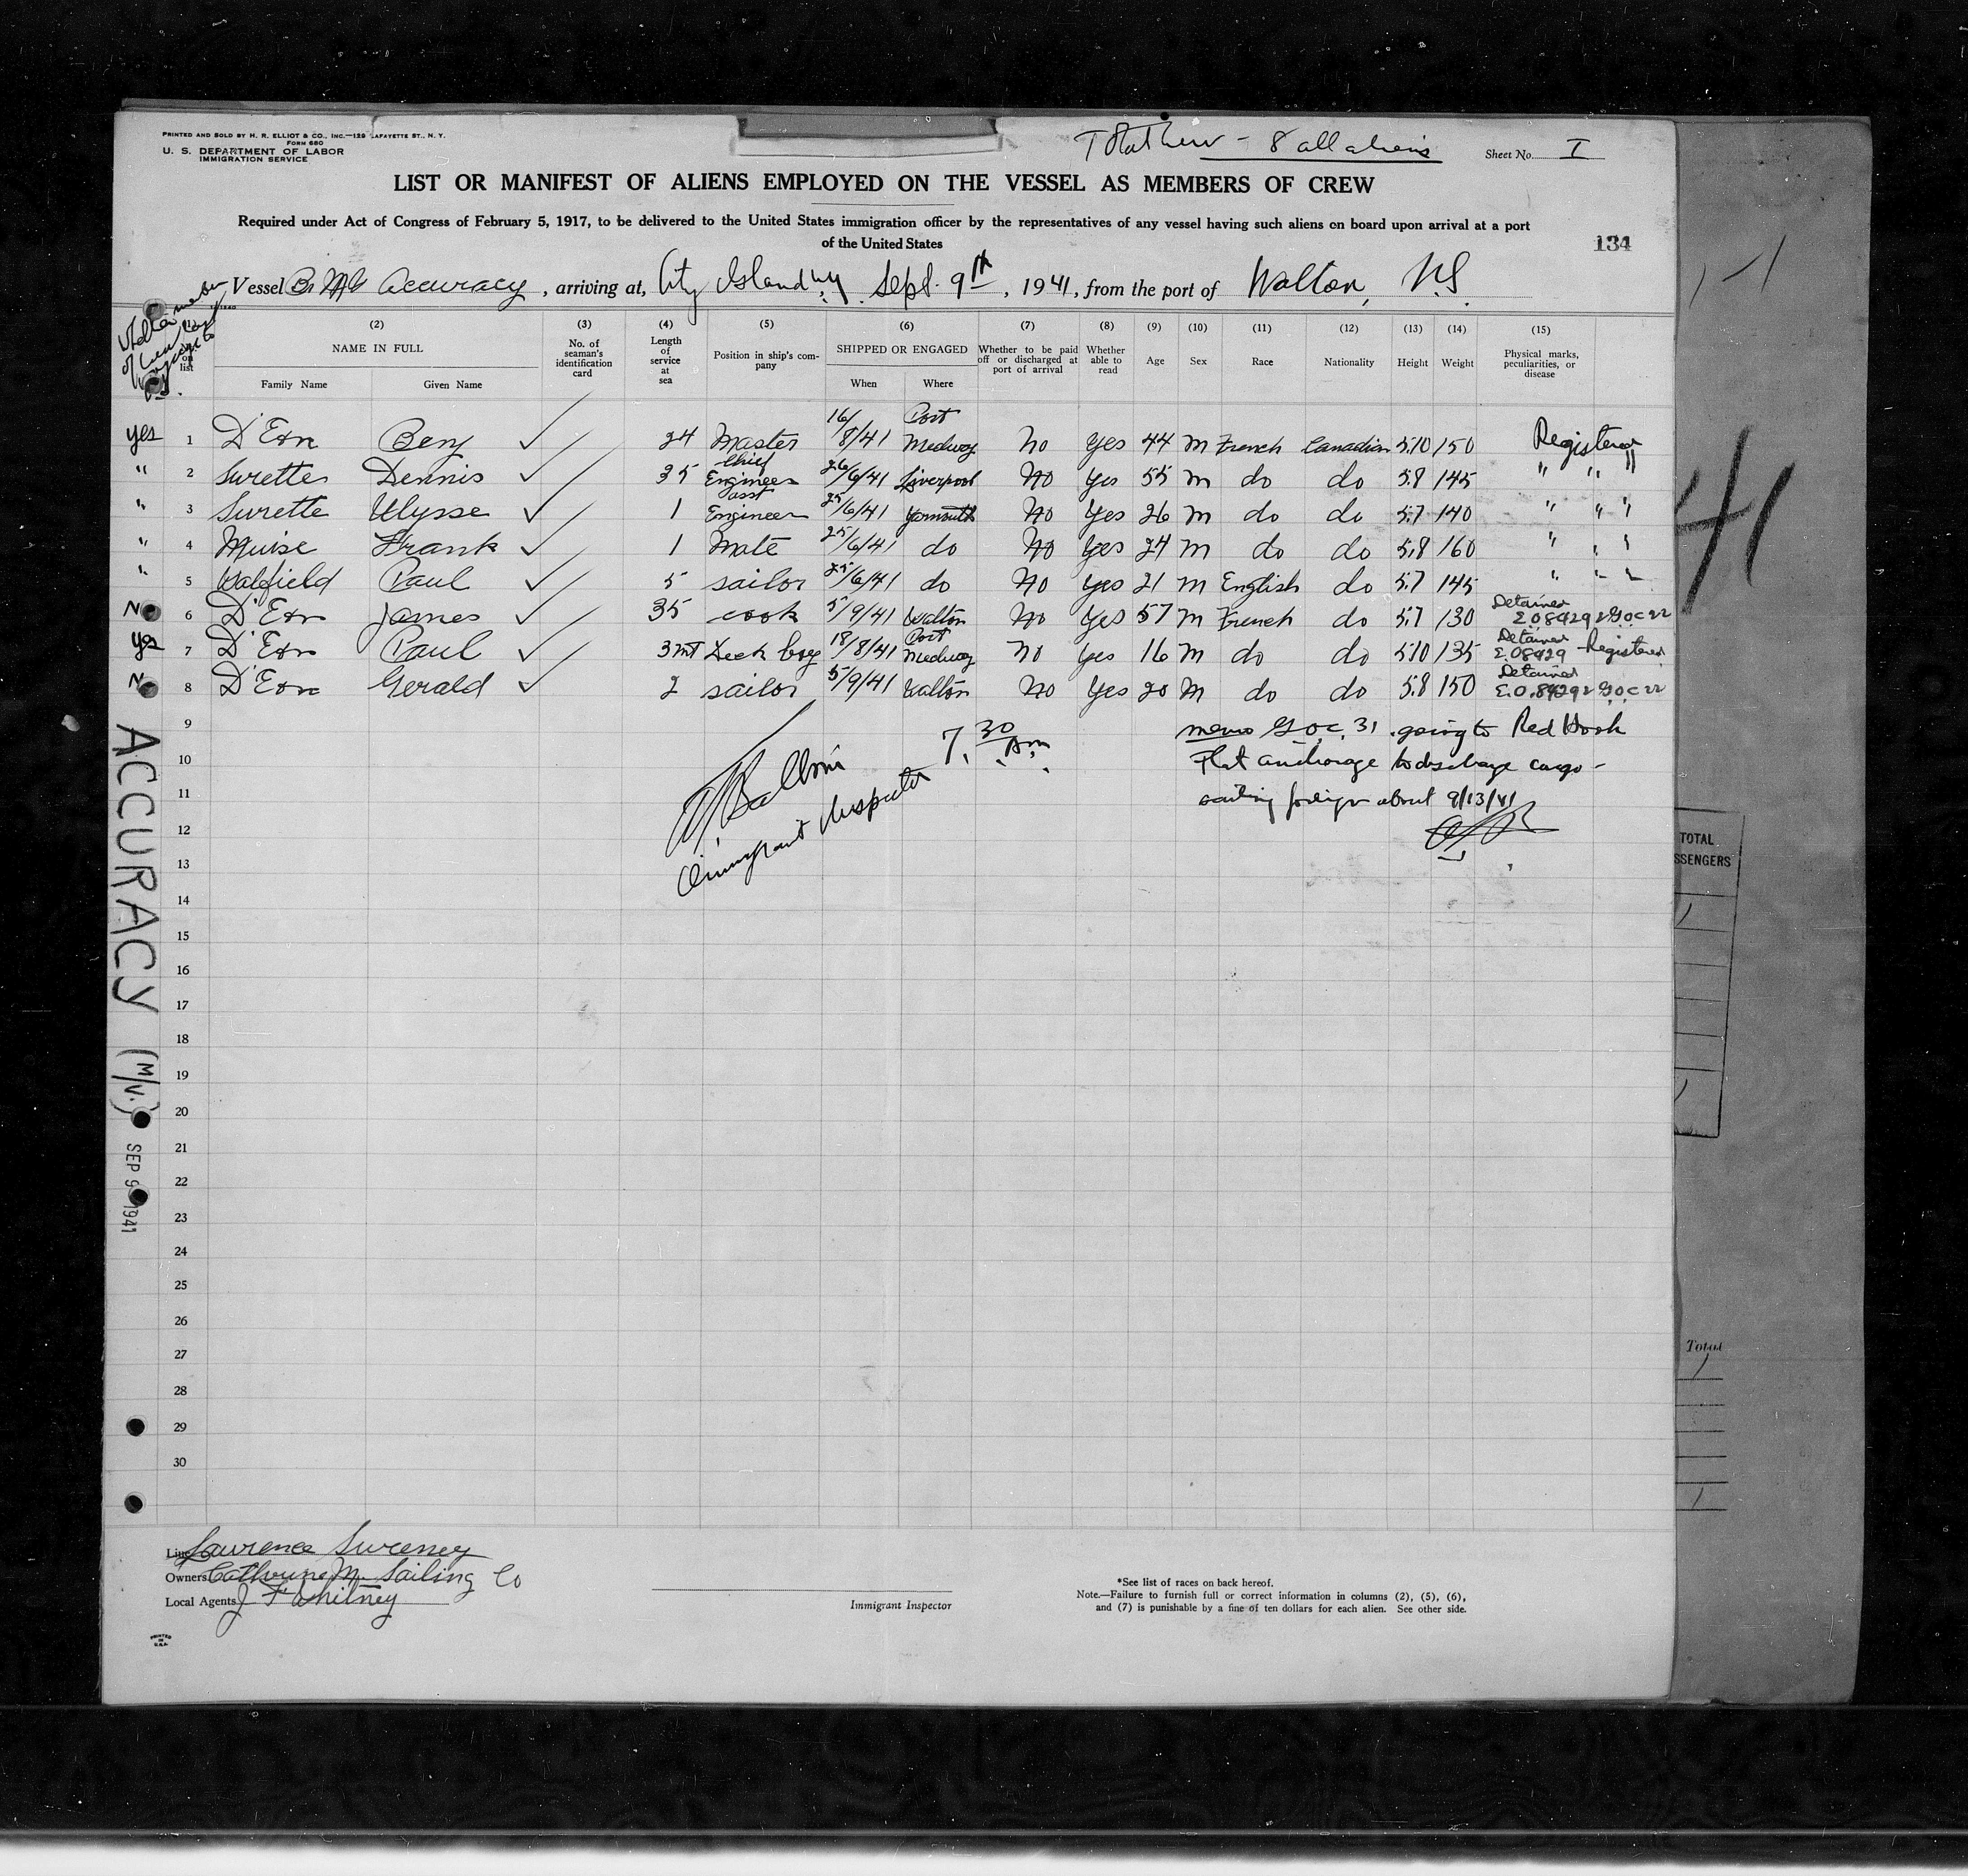 PRINTED AND SOLD BY H. R. ELLIOT & CO., INC.—129 LAFAYETTE ST., N. Y.
FORM 680
U. S. DEPARTMENT OF LABOR
IMMIGRATION SERVICE
8 all aliens
Sheet No. I
LIST OR MANIFEST OF ALIENS EMPLOYED ON THE VESSEL AS MEMBERS OF CREW
Required under Act of Congress of February 5, 1917, to be delivered to the United States immigration officer by the representatives of any vessel having such aliens on board upon arrival at a port
of the United States
134
Vessel Accuracy, arriving at, City Island N.Y. Sept. 9th, 1941, from the port of Walton, N.S.
(2) (3) (4) (5) (6) (7) (8) (9) (10) (11) (12) (13) (14) (15)
on list
NAME IN FULL
Family Name Given Name
No. of seaman's identification card
Length of service at sea
Position in ship's company
SHIPPED OR ENGAGED
When Where
Whether to be paid off or discharged at port of arrival
Whether able to read
Age Sex Race Nationality Height Weight
Physical marks, peculiarities, or disease
yes 1 D'Eon Benj ✓ 24 Master 16/8/41 Port Medway No Yes 44 M French Canadian 5.10 150 Registered
" 2 Surette Dennis ✓ 35 Chief Engineer 26/6/41 Liverpool No Yes 55 M do do 5.8 145 " " "
" 3 Surette Ulysse ✓ 1 asst Engineer 25/6/41 Yarmouth No Yes 26 M do do 5.7 140 " " "
" 4 Muise Frank ✓ 1 Mate 25/6/41 do No Yes 24 M do do 5.8 160 " " "
" 5 Paul ✓ 5 sailor 25/6/41 do No Yes 21 M English do 5.7 145 " " "
No 6 D'Eon James ✓ 35 cook 5/9/41 Walton No Yes 57 M French do 5.7 130 Detained E.O 8429
yes 7 D'Eon Paul ✓ 3 mt Deck boy 18/8/41 Port Medway No Yes 16 M do do 5.10 135 Detained E.O 8429 - Registered
No 8 D'Eon Gerald ✓ 2 sailor 5/9/41 Walton No Yes 20 M do do 5.8 150 Detained E.O. 8429
9
10
11
12
13
14
15
16
17
18
19
20
21
22
23
24
25
26
27
28
29
30
7.30 Am
Immigrant Inspector
memo G.O.C. 31. going to Red Hook
Flat anchorage to discharge cargo -
sailing foreign about 9/13/41
ACCURACY (M/V.)
SEP 9 1941
Line Laurence Sweeney
Owners Catherine M. Sailing Co
Local Agents J F Whitney
Immigrant Inspector
*See list of races on back hereof.
Note.—Failure to furnish full or correct information in columns (2), (5), (6),
and (7) is punishable by a fine of ten dollars for each alien. See other side.
PRINTED IN U.S.A.
41
TOTAL
SSENGERS
Total